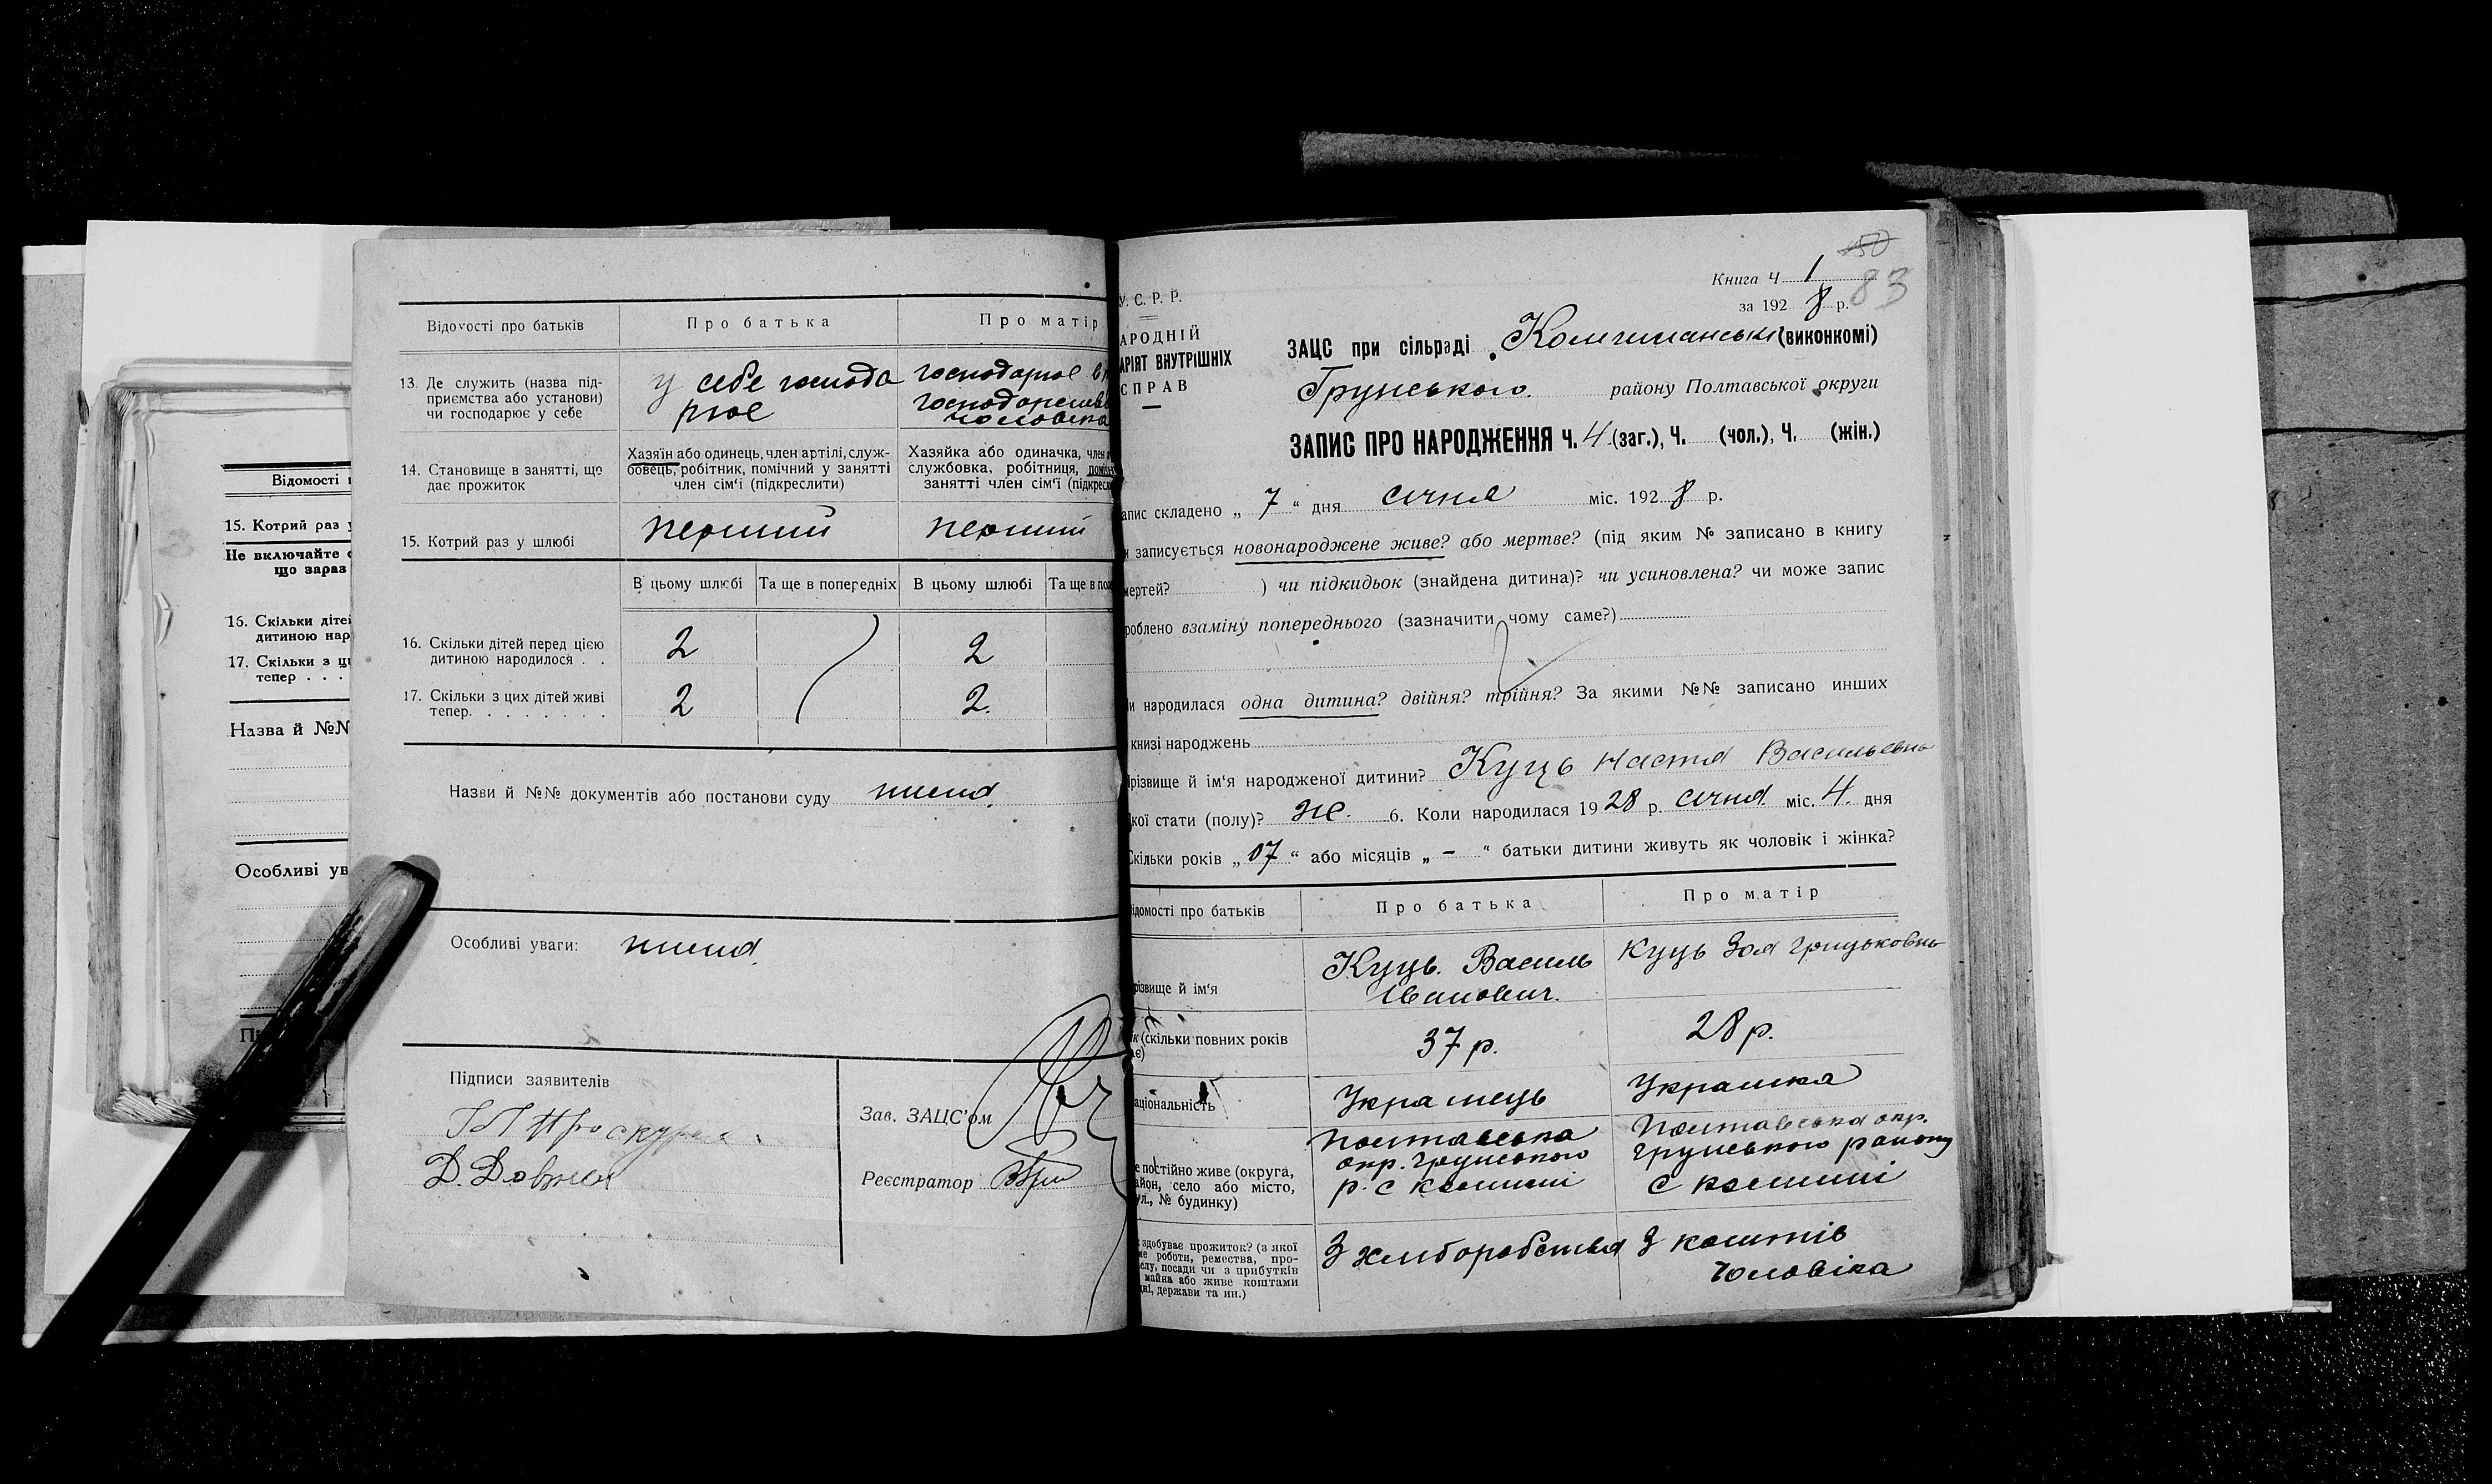 Відомості
15. Котрий раз у
Не включайте
що зараз
16. Скільки дітей
дитиною нар
17. Скільки з ц
тепер . . .
Назва й №№
Особливі ув
Відомості про батьків
Про батька
Про матір
13. Де служить (назва під-
приємства або установи)
чи господарює у себе
у себе господа
рює
господарює в
господарстві
чоловіка
14. Становище в занятті, що
дає прожиток
Хазяїн або одинець, член артілі, служ-
бовець, робітник, помічний у занятті
член сім'ї (підкреслити)
Хазяйка або одиначка, член
службовка, робітниця, поміч
занятті член сім'ї (підкресл
15. Котрий раз у шлюбі
перший
перший
В цьому шлюбі
Та ще в попередніх
В цьому шлюбі
Та ще в поп
16. Скільки дітей перед цією
дитиною народилося . .
2
2
17. Скільки з цих дітей живі
тепер. . . . . . . .
2
2.
Назви й №№ документів або постанови суду
нима.
Особливі уваги:
нима.
Підписи заявителів
Проскурня
Д. Довжа
Зав. ЗАЦС'ом
Реєстратор
50
Книга Ч 1
83
за 1928 р.
У. С. Р. Р.
АРОДНІЙ
АРІЯТ ВНУТРІШНІХ
СПРАВ
ЗАЦС при сільраді (виконкомі)
Грунського. району Полтавської округи
ЗАПИС ПРО НАРОДЖЕННЯ Ч. 4 (заг.), Ч. (чол.), Ч. (жін.)
апис складено „ 7 “ дня січня міс. 1928 р.
и записується новонароджене живе? або мертве? (під яким № записано в книгу
мертей? ) чи підкидьок (знайдена дитина)? чи усиновлена? чи може запис
роблено взаміну попереднього (зазначити чому саме?)
и народилася одна дитина? двійня? трійня? За якими №№ записано инших
книзі народжень
Прізвище й ім'я народженої дитини? Куць Настя Васильевна
кої стати (полу)? же. 6. Коли народилася 1928 р. січня міс. 4. дня
Скільки років „ 07 “ або місяців „ – “ батьки дитини живуть як чоловік і жінка?
ідомості про батьків
Про батька
Про матір
різвище й ім'я
Куць. Василь
Іванович.
Куць Зоя Грицьковна
к (скільки повних років
ає)
37 р.
28 р.
аціональність
Украінець
Украінка
е постійно живе (округа,
айон, село або місто,
ул., № будинку)
Полтавська
окр. Грунського
р. с комиші
Полтавська окр.
Грунського району
с комиші
к здобуває прожиток? (з якої
ме роботи, ремества, про-
слу, посади чи з прибутків
майна або живе коштами
дні, держави та ин.)
З хліборобства
З коштів
чоловіка